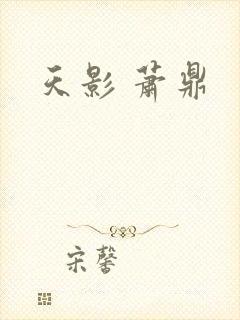 天影 萧鼎
宋馨